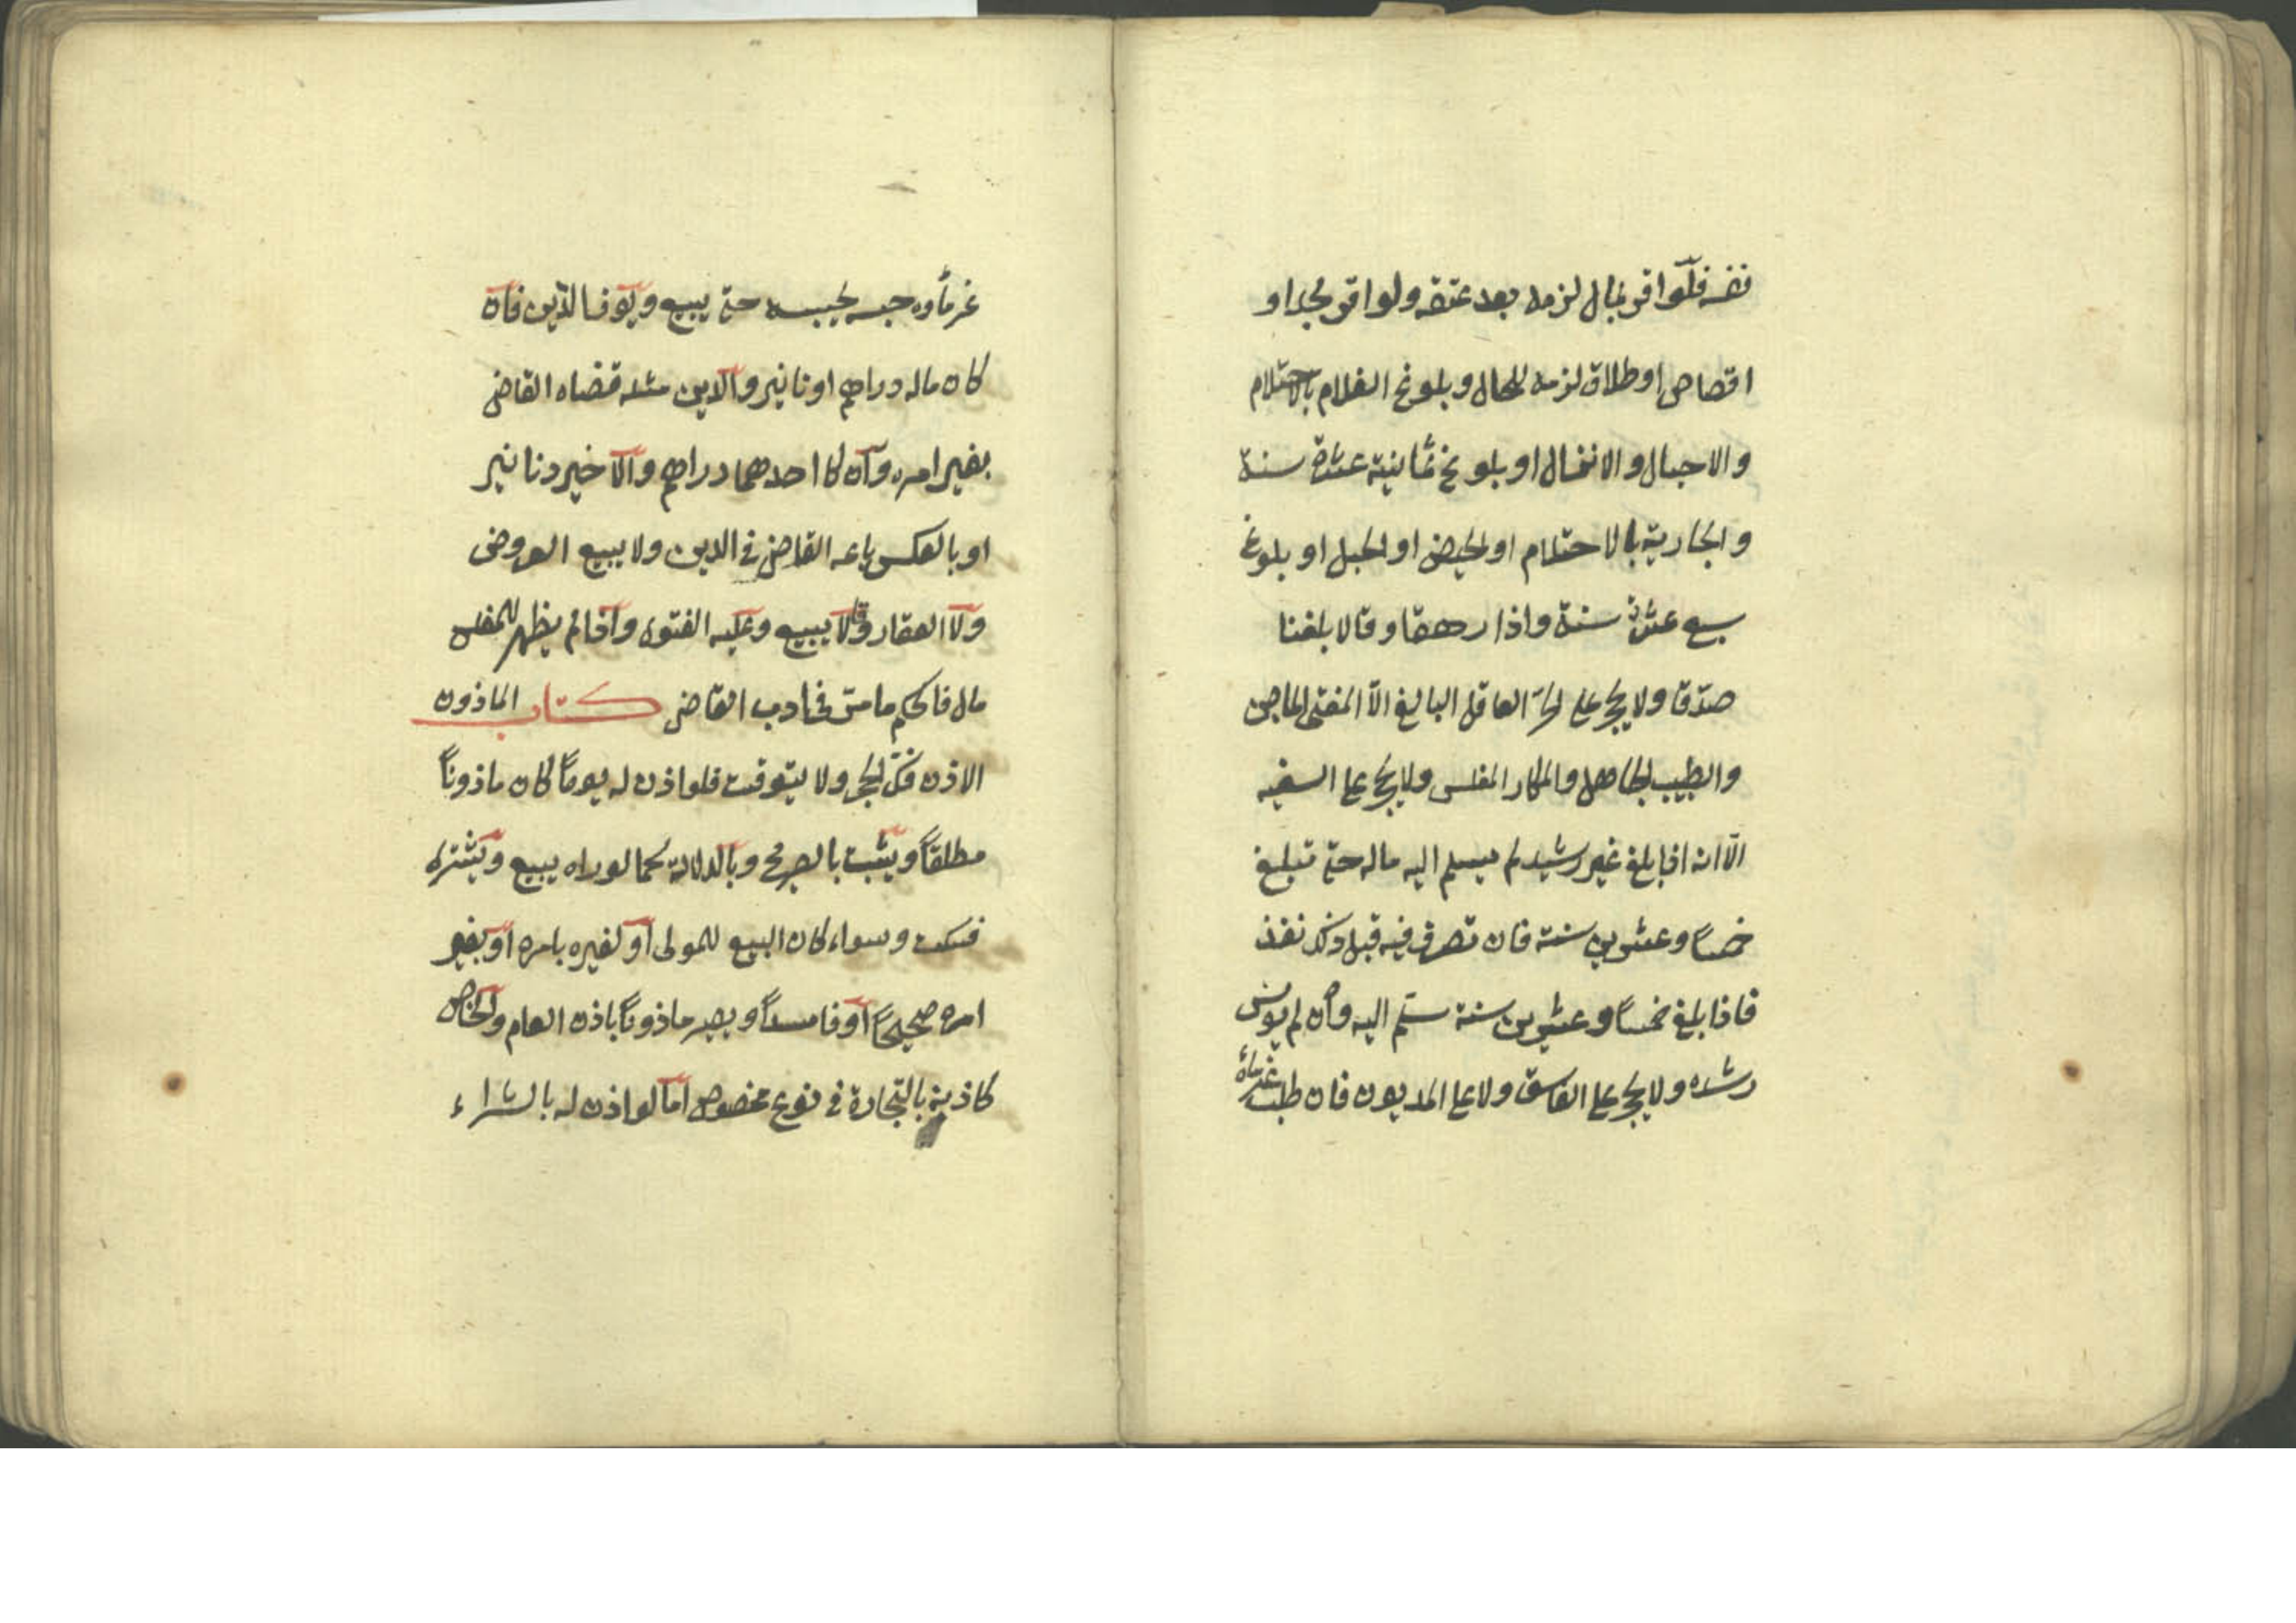 نفسه فلو اقر بمال لزمه بعد عتقه ولو اقر بحد او
اقصاص او طلاق لزمه للحال وبلوغ الغلام بالاحتلام
والاحبال والانزال او بلوغ ثمانية عشرة سنة
والجارية بالاحتلام او الحيض او الحبل او بلوغ
سبع عشرة سنة واذا رهقا وقالا بلغنا
صدّقا ولا يحجر على الحرّ العاقل البالغ الاّ المفتى الماجن
والطبيب الجاهل والمكار المفلس ولا يحجر على السفيه
الاّ انه اذا بلغ غير رشيد لم يسلم اليه ماله حتى تبلغ
خمسًا وعشرين سنة فان تصرف فيه قبل ذلك نفذ
فاذا بلغ خمسًا وعشرين سنة سلّم اليه وان لم يونس
رشده ولا يحجر على الفاسق ولا على المديون فان طلب غرماؤه
غرماؤه حبسه يحبسه حتى يبيع ويوفى الدّين فان
كان ماله دراهم او نانير والدين مثله قضاه القاضى
بغير امره وان كا احدهما دراهم والاخير دنانير
او بالعكس باعه القاضى فى الدين ولا يبيع العروض
ولا العقار وقالا يبيع وعليه الفتوى واذا لم يظهر للمفلس
مال فالحكم ما مرّ فى ادب القاضى كتاب الماذون
الاذن فكّ الحجر ولا يتوقت فلو اذن له يومًا كان ماذونًا
مطلقًا ويثبت بالصريح وبالدلالة كما لو راه يبيع ويشترى
فسكت وسواء كان البيع للمولى او لغيره بامره او بغير
امره صحيحًا او فاسدًا ويصير ماذونًا باذن العام والخاص
كاذنه بالتجارة فى نوع مخصوص امّا لو اذن له بالشراء